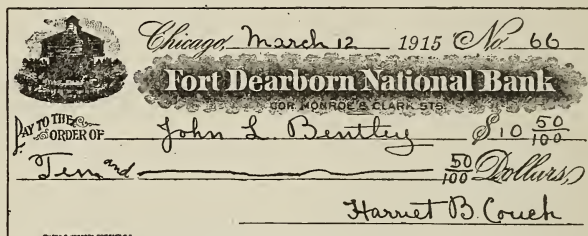 Chicago, March 12 1915 No. 66
Fort Dearborn National Bank
COR. MONROE & CLARK STS.
PAY TO THE ORDER OF John L. Bentley $10 50/100
Ten and 50/100 Dollars,
Harriet B. Couch